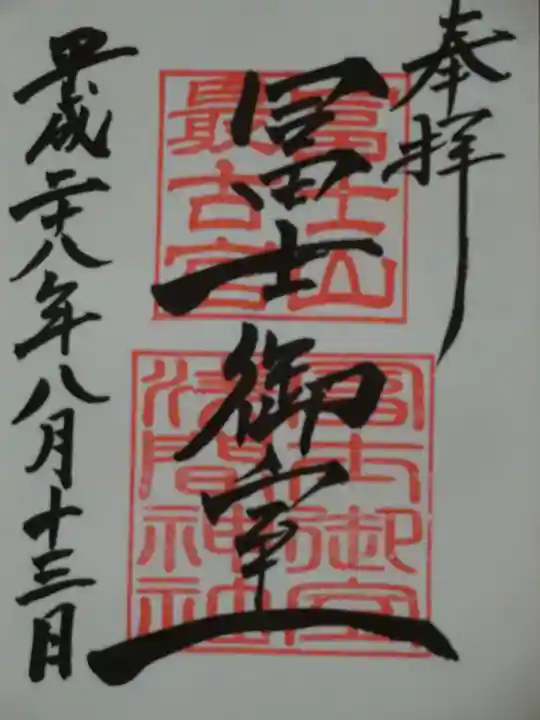 奉拝
冨士山
最古宮
冨士御室
冨士御室
浅間神社
平成二十八年八月十三日